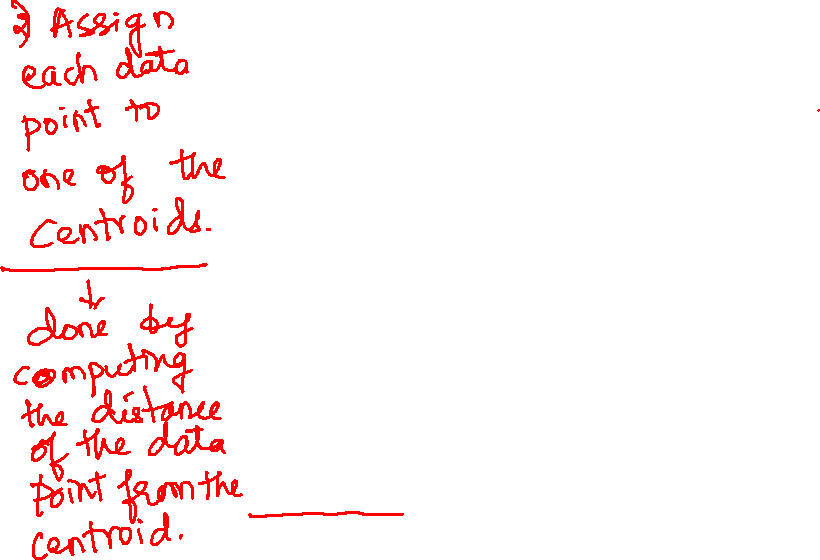 2) Assign
each data
point to
one of the
Centroids.
↓
done by
computing
the distance
of the data
point from the
centroid.